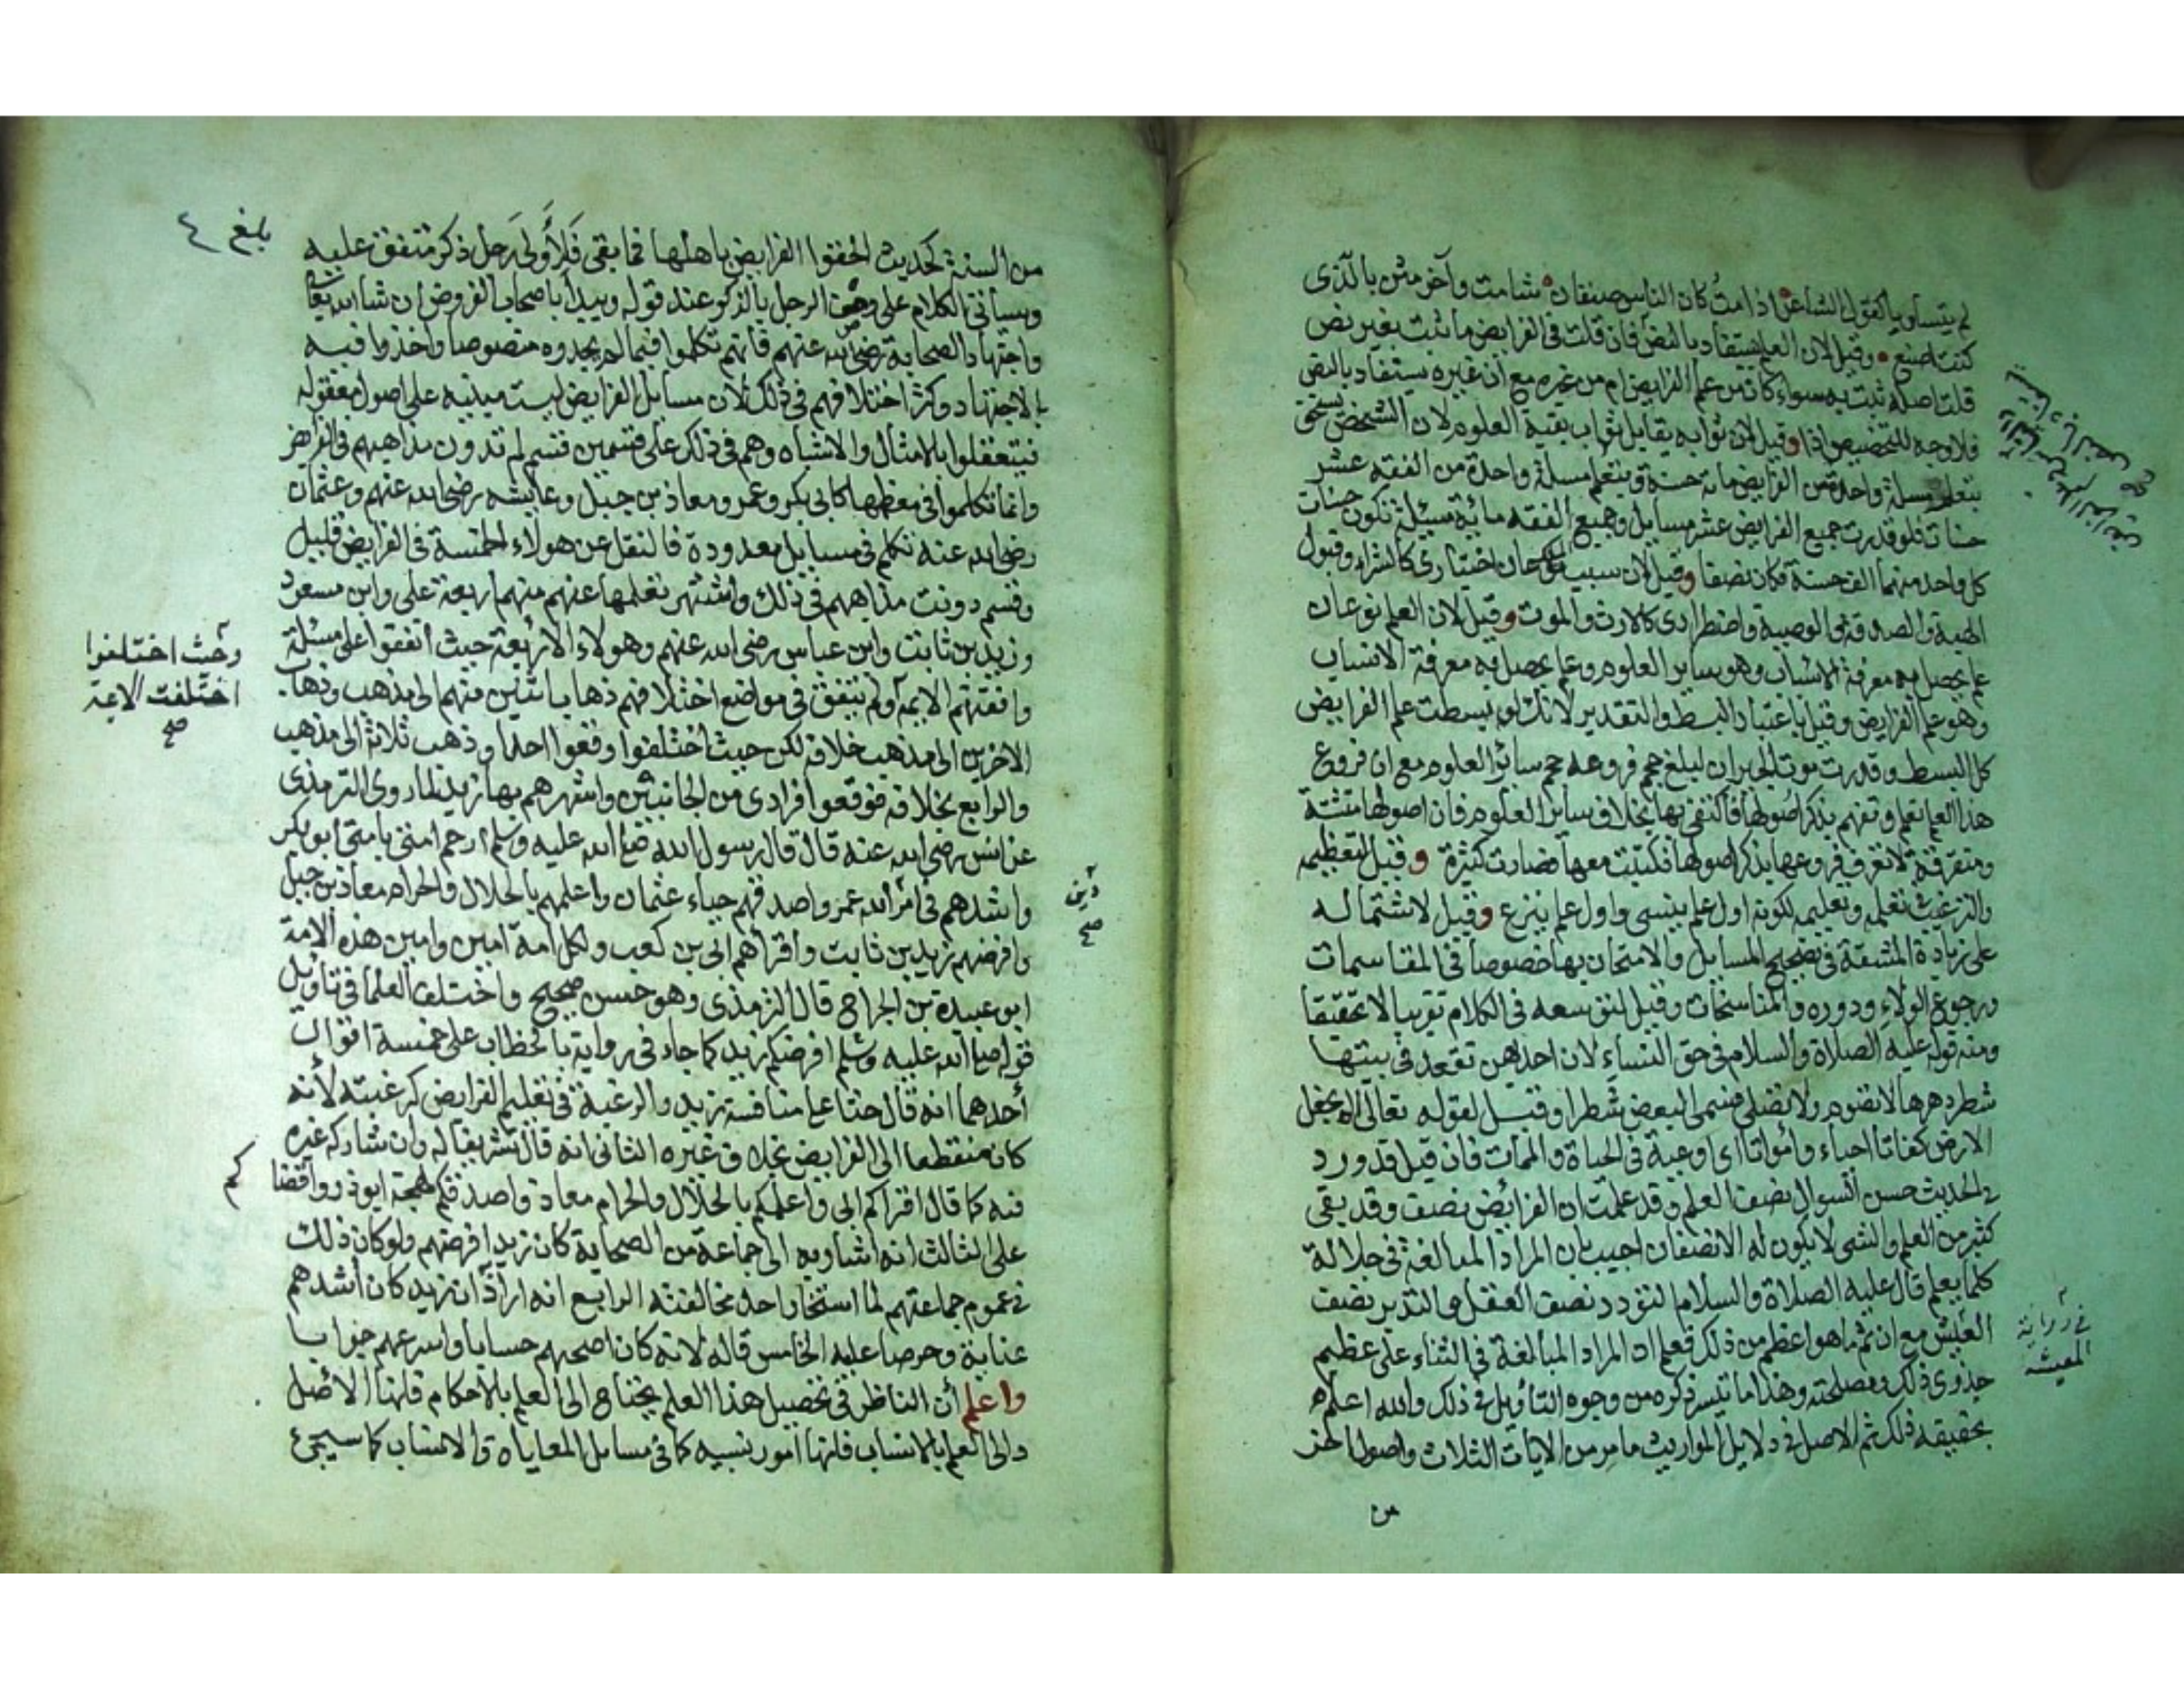 لم يتساويا كقول الشاعر اذا مت كان الناس صنفان شامت وآخر مثن بالذى
كنت اصنع وقيل لان العلم يستفاد بالنص فان قلت فى الفرايض ما ثبت بغير نص
قلت اصله ثبت به سواء كان من علم الفرايض ام من غيره مع ان غيره يستفاد بالنص
فلا وجه للتخصيص اذا وقيل لان ثوابه يقابل ثواب بقية العلوم لان الشخص يستحق
بتعلم مسئلة واحدة من الفرايض مائة حسنة وبتعلم مسئلة واحدة من الفقه عشر
حسنات فلو قدرت جميع الفرايض عشر مسايل وجميع الفقه مائة مسئلة تكون حسنات
كل واحد منهما الف حسنة فكان نصفا وقيل لان سبب الملك نوعان اختيارى كالشراء وقبول
الهبة والصدقة والوصية واضطرارى كالارث والموت وقيل لان العلم نوعان
علم يحصل به معرفة الاسباب وهو ساير العلوم وعلم يحصل به معرفة الانساب
وهو علم الفرايض وقيل باعتبار البسط والتقدير لانك لو بسطت علم الفرايض
كل البسط وقدرت موت الجيران ليبلغ حجم فروعه حجم سائر العلوم مع ان فروع
هذا العلم تعلم وتفهم بذكر اصولها فاكتفى بها بخلاف ساير العلوم فان اصولها متشتة
ومتفرقة لا تعرف فروعها بذكر اصولها فكتبت معها فصارت كثيرة وقيل لتعظيمه
والترغيب تعلمه وتعليمه لكونه اول علم ينسى واول علم ينزع وقيل لاشتماله
على زيادة المشقة فى تصحيح المسايل والامتحان بها خصوصا فى المقاسمات
ورجوع الولاء ودوره والمناسخات وقيل لتوسعه فى الكلام تقريبا لا تحقيقا
ومنه قوله عليه الصلاة والسلام فى حق النساء لان احديهن تقعد فى بيتها
شطر دهرها لا تصوم ولا تصلى فسمى البعض شطرا وقيل لقوله تعالى الم نجعل
الارض كفاتا احياء وامواتا اى اوعية فى الحياة والممات فان قيل قد ورد
فى الحديث حسن السوال نصف العلم وقد علمت ان الفرائض نصف وقد بقى
كثير من العلم والشى لا يكون له الا نصفان اجيب بان المراد المبالغة فى جلالة
كلما يعلم قال عليه الصلاة والسلام التودد نصف العقل والتدبير نصف
العيش مع ان ثم ما هو اعظم من ذلك فعلم ان المراد المبالغة فى الثناء على عظيم
جدوى ذلك ومصلحته وهذا ما تيسر ذكره من وجوه التأويل فى ذلك والله اعلم
بحقيقة ذلك ثم الاصل فى دلايل المواريث ما مر من الايات الثلاث واصول اخر
من
فى رواية
المعيشة
بلغ
من السنة كحديث الحقوا الفرايض باهلها فما بقى فلأولى رجل ذكر متفق عليه
وسيأتى الكلام على وصف الرجل بالذكر عند قوله ويبدأ باصحاب الفروض ان شا الله تعالى
واجتهاد الصحابة رضى الله عنهم فانهم تكلموا فيما لم يجدوه منصوصا واخذوا فيه
بالاجتهاد وكثر اختلافهم فى ذلك لان مسايل الفرايض ليست مبنيه على اصول معقوله
فيتعقلوا بالامثال والاشباه وهم فى ذلك على قسمين قسم لم تدون مذاهبهم فى الفرايض
وانما تكلموا فى معظمها كابى بكر وعمر ومعاذ بن جبل وعايشه رضى الله عنهم وعثمان
رضى الله عنه تكلم فى مسايل معدودة فالنقل عن هولاء الخمسة فى الفرايض قليل
وقسم دونت مذاهبهم فى ذلك واشتهر نقلها عنهم منهم اربعة على وابن مسعود
وزيد بن ثابت وابن عباس رضى الله عنهم وهولاء الاربعة حيث اتفقوا على مسئلة
وافقتهم الايمة ولم يتفق فى مواضع اختلافهم ذهاب اثنين منهم الى مذهب وذهاب
الاخرين الى مذهب خلاف لكن حيث اختلفوا وقعوا احدا وذهب ثلاثة الى مذهب
والرابع بخلافه فوقعوا فرادى من الجانبين واشهرهم بها زيد لما روى الترمذى
عن انس رضى الله عنه قال قال رسول الله صلى الله عليه وسلم ارحم امتى بامتى ابو بكر
واشدهم فى امر الله عمر واصدقهم حياء عثمان واعلمهم بالحلال والحرام معاذ بن جبل
وافرضهم زيد بن ثابت واقراهم ابى بن كعب ولكل امة امين وامين هذه الامة
ابو عبيدة بن الجراح قال الترمذى وهو حسن صحيح واختلف العلما فى تاويل
قوله صلى الله عليه وسلم افرضكم زيد كما جاء فى رواية بالخطاب على خمسة اقوال
أحدهما انه قال حثا على منافسة زيد والرغبة فى تعليم الفرايض كرغبته لأنه
كان منقطعا الى الفرايض بخلاف غيره الثانى انه قال تشريفا له وان شاركه غيره
فيه كما قال اقراكم ابى واعلمكم بالحلال والحرام معاذ واصدقكم لهجة ابو ذر واقضا كم
على الثالث انه اشار به الى جماعة من الصحابة كان زيد افرضهم ولو كان ذلك
فى عموم جماعتهم لما استجاز احد مخالفته الرابع انه اراد ان زيد كان اشدهم
عناية وحرصا عليه الخامس قاله لانه كان اصحهم حسابا واسرعهم جوابا
واعلم أن الناظر فى تحصيل هذا العلم يحتاج الى العلم بالاحكام فانها الاصل
والى العلم بالانساب فانها امور نسبيه كما فى مسايل المعاياة والانساب كما سيجئ
وحيث اختلفوا
اختلفت الايمة
صح
دين
صح